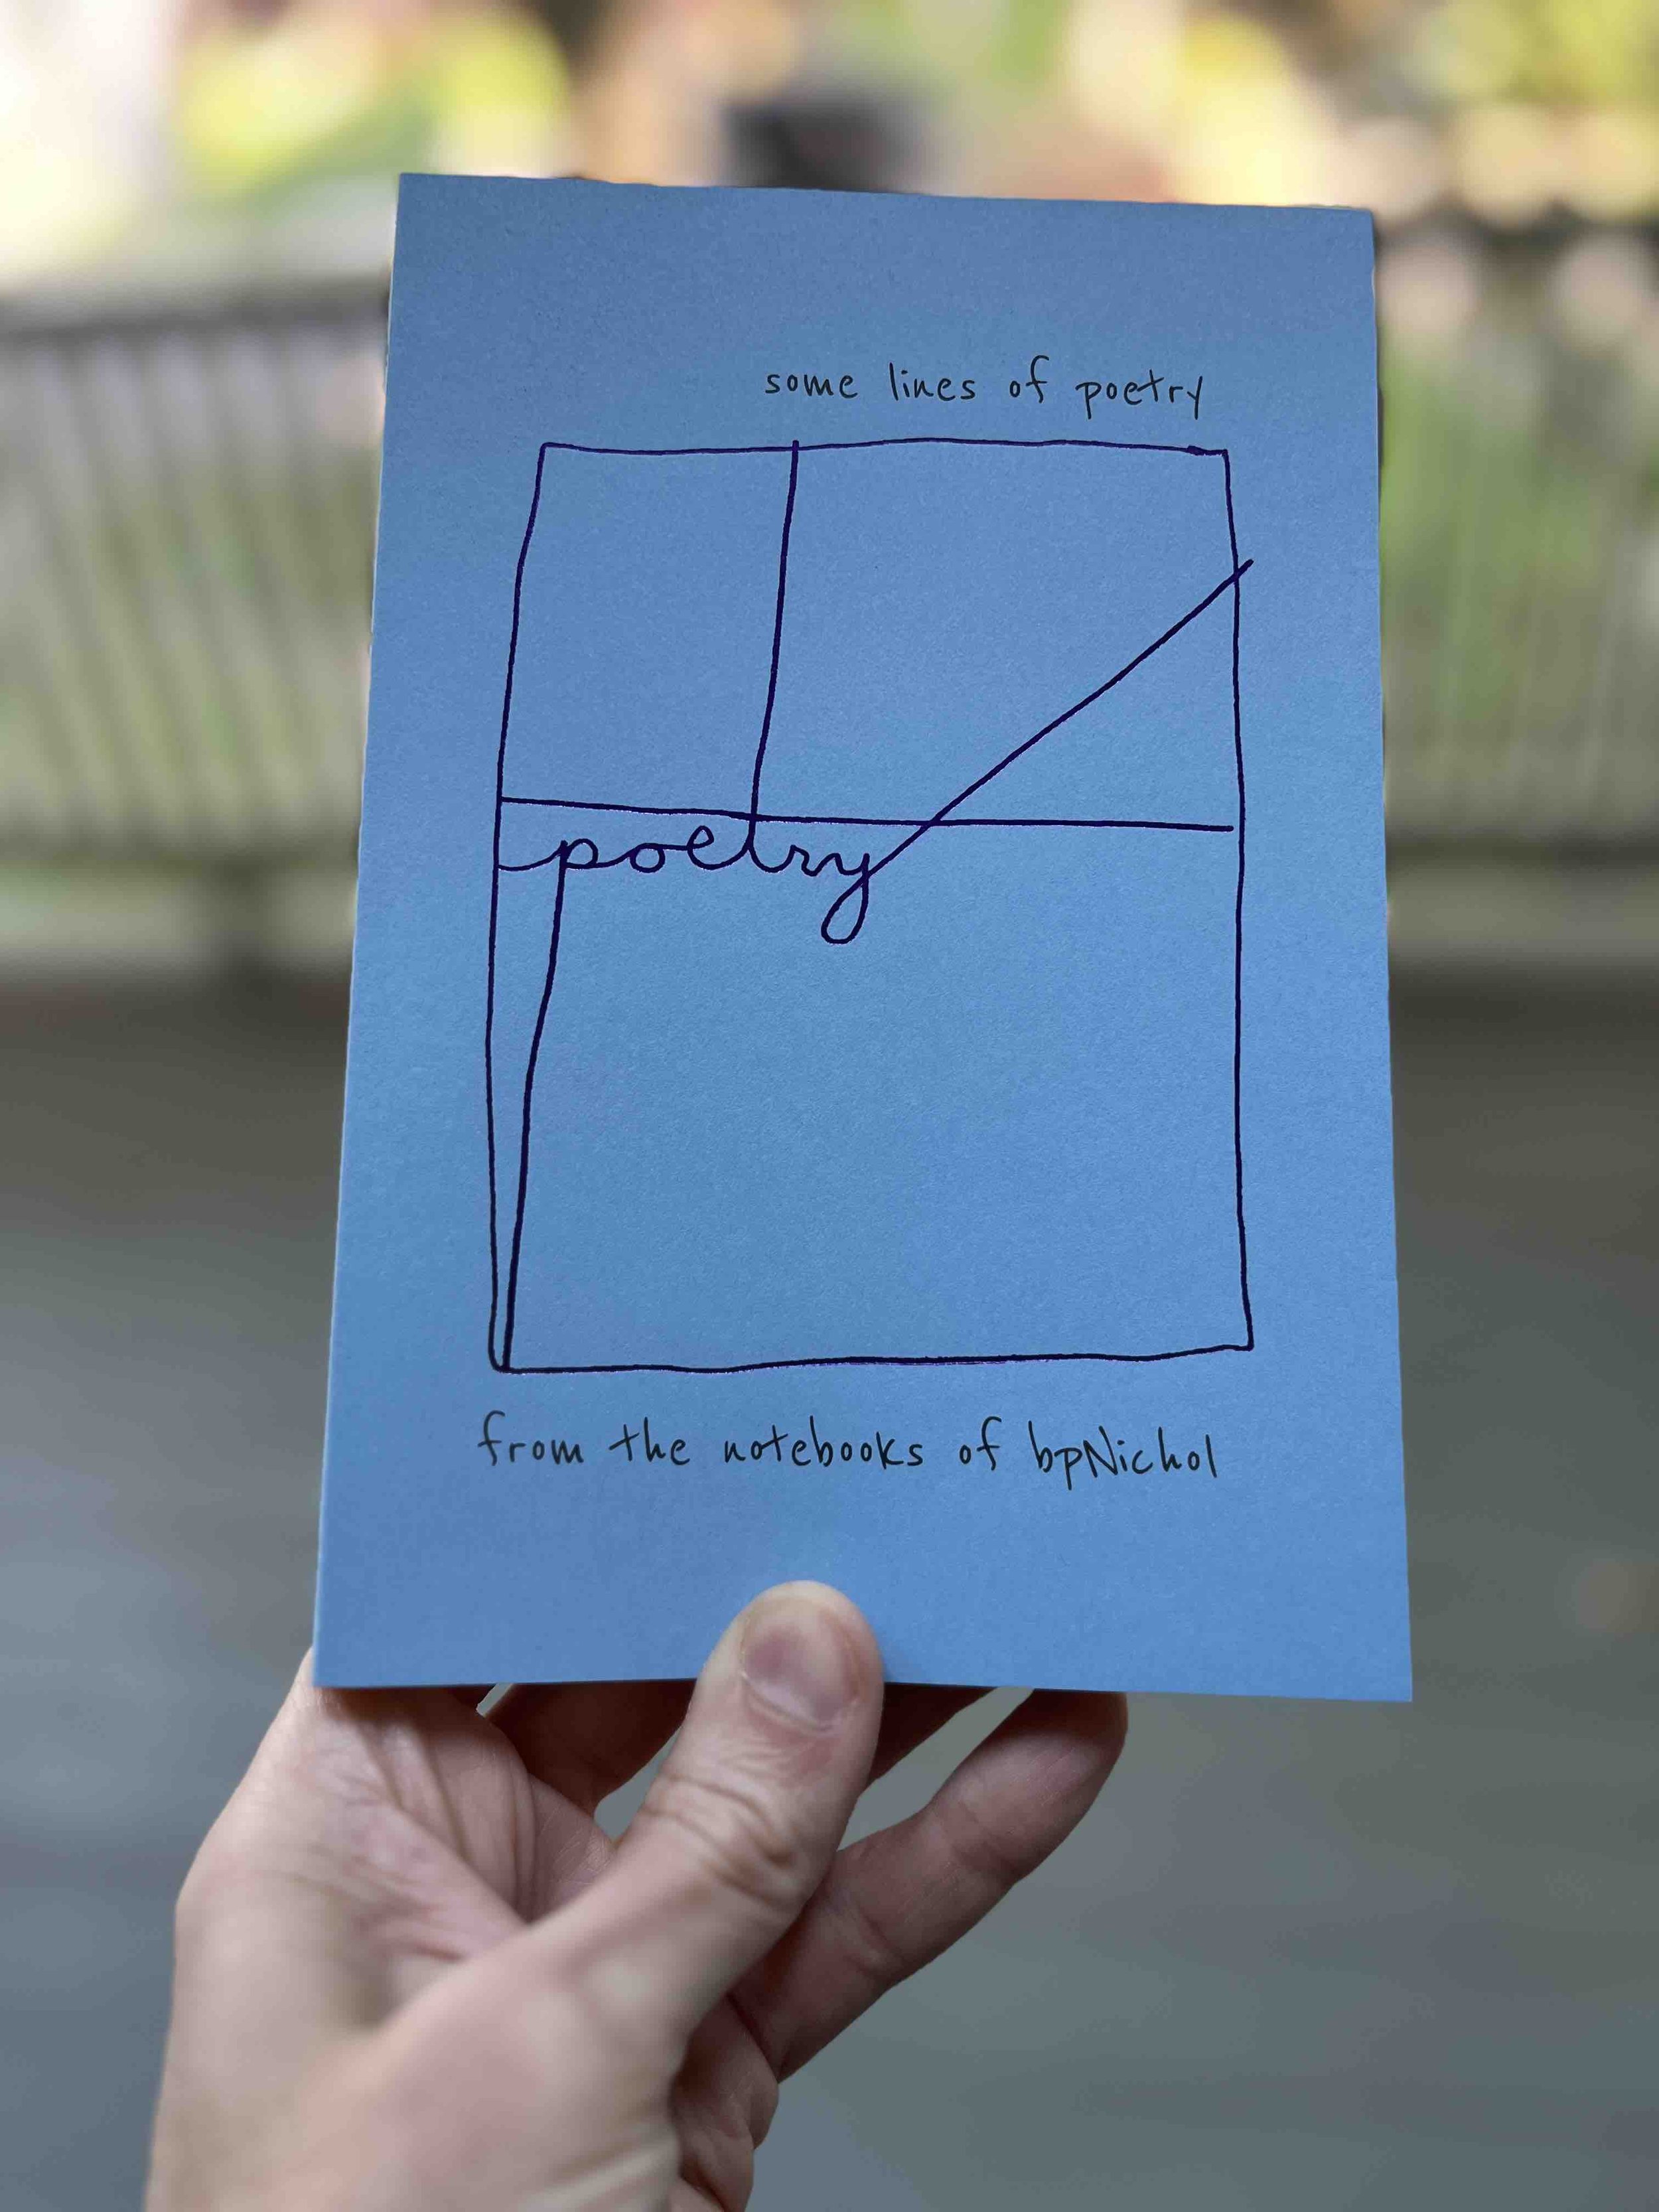 some lines of poetry
poetry
from the notebooks of bpNichol